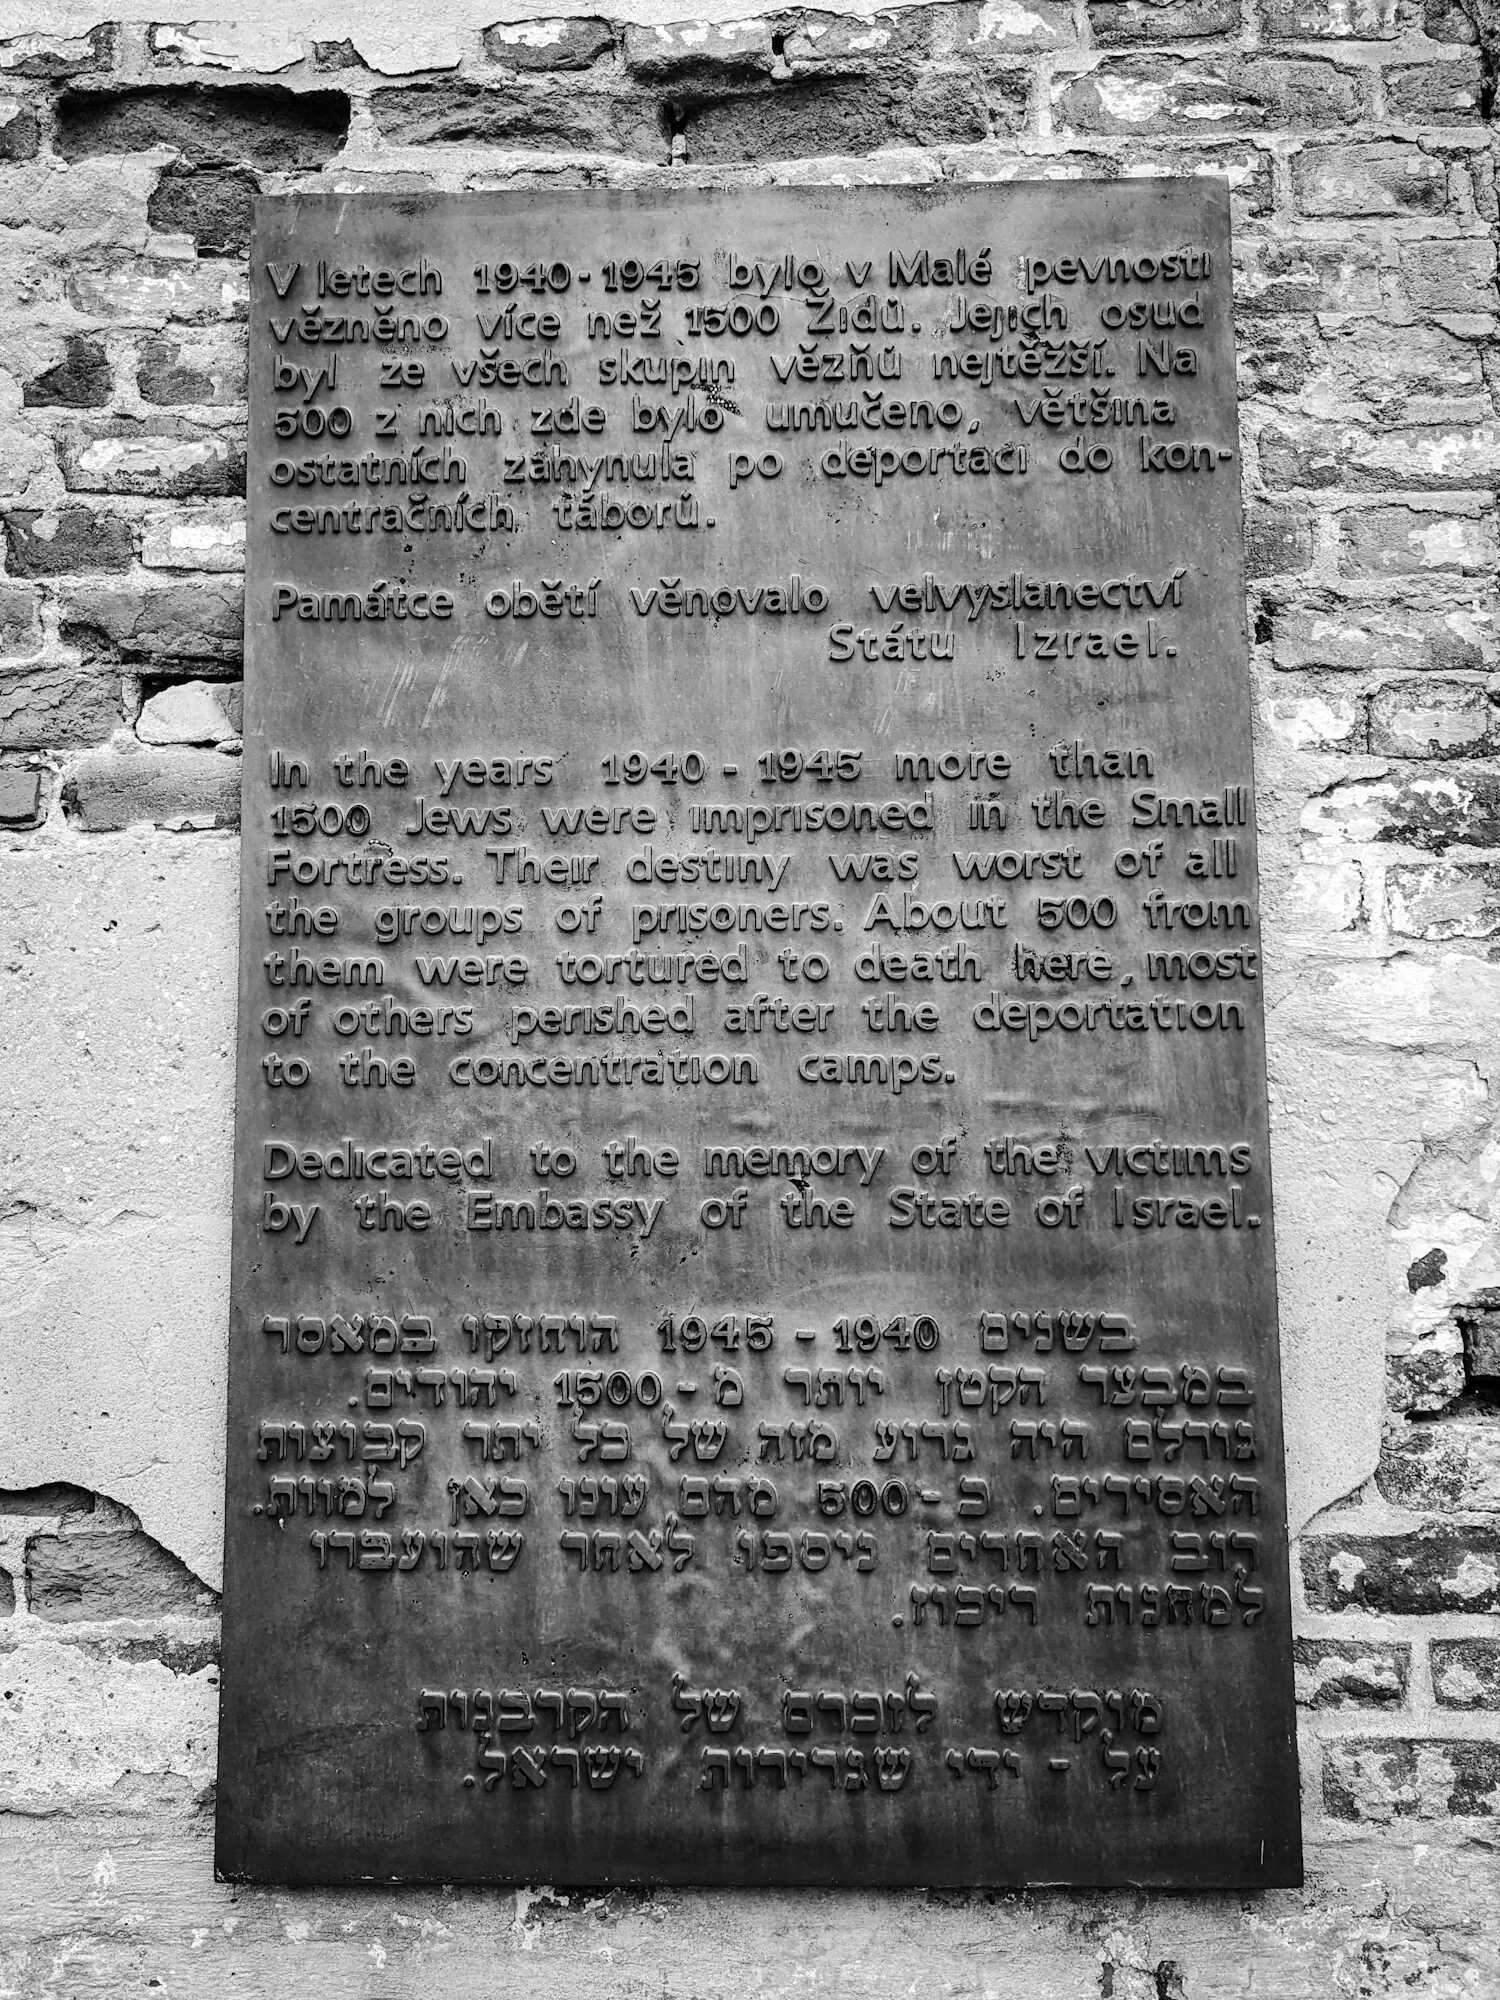 V letech 1940-1945 bylo v Malé pevnosti
vězněno více než 1500 Židů. Jejich osud
byl ze všech skupin vězňů nejtěžší. Na
500 z nich zde bylo umučeno, většina
ostatních zahynula po deportaci do kon-
centračních táborů.
Památce obětí věnovalo velvyslanectví
Státu Izrael.
In the years 1940 - 1945 more than
1500 Jews were imprisoned in the Small
Fortress. Their destiny was worst of all
the groups of prisoners. About 500 from
them were tortured to death here, most
of others perished after the deportation
to the concentration camps.
Dedicated to the memory of the victims
by the Embassy of the State of Israel.
בשנים 1940 - 1945 הוחזקו במאסר
במבצר הקטן יותר מ - 1500 יהודים.
גורלם היה גרוע מזה של כל יתר קבוצות
האסירים. כ - 500 מהם עונו כאן למוות.
רוב האחרים ניספו לאחר שהועברו
למחנות ריכוז.
מוקדש לזכרם של הקרבנות
על - ידי שגרירות ישראל.